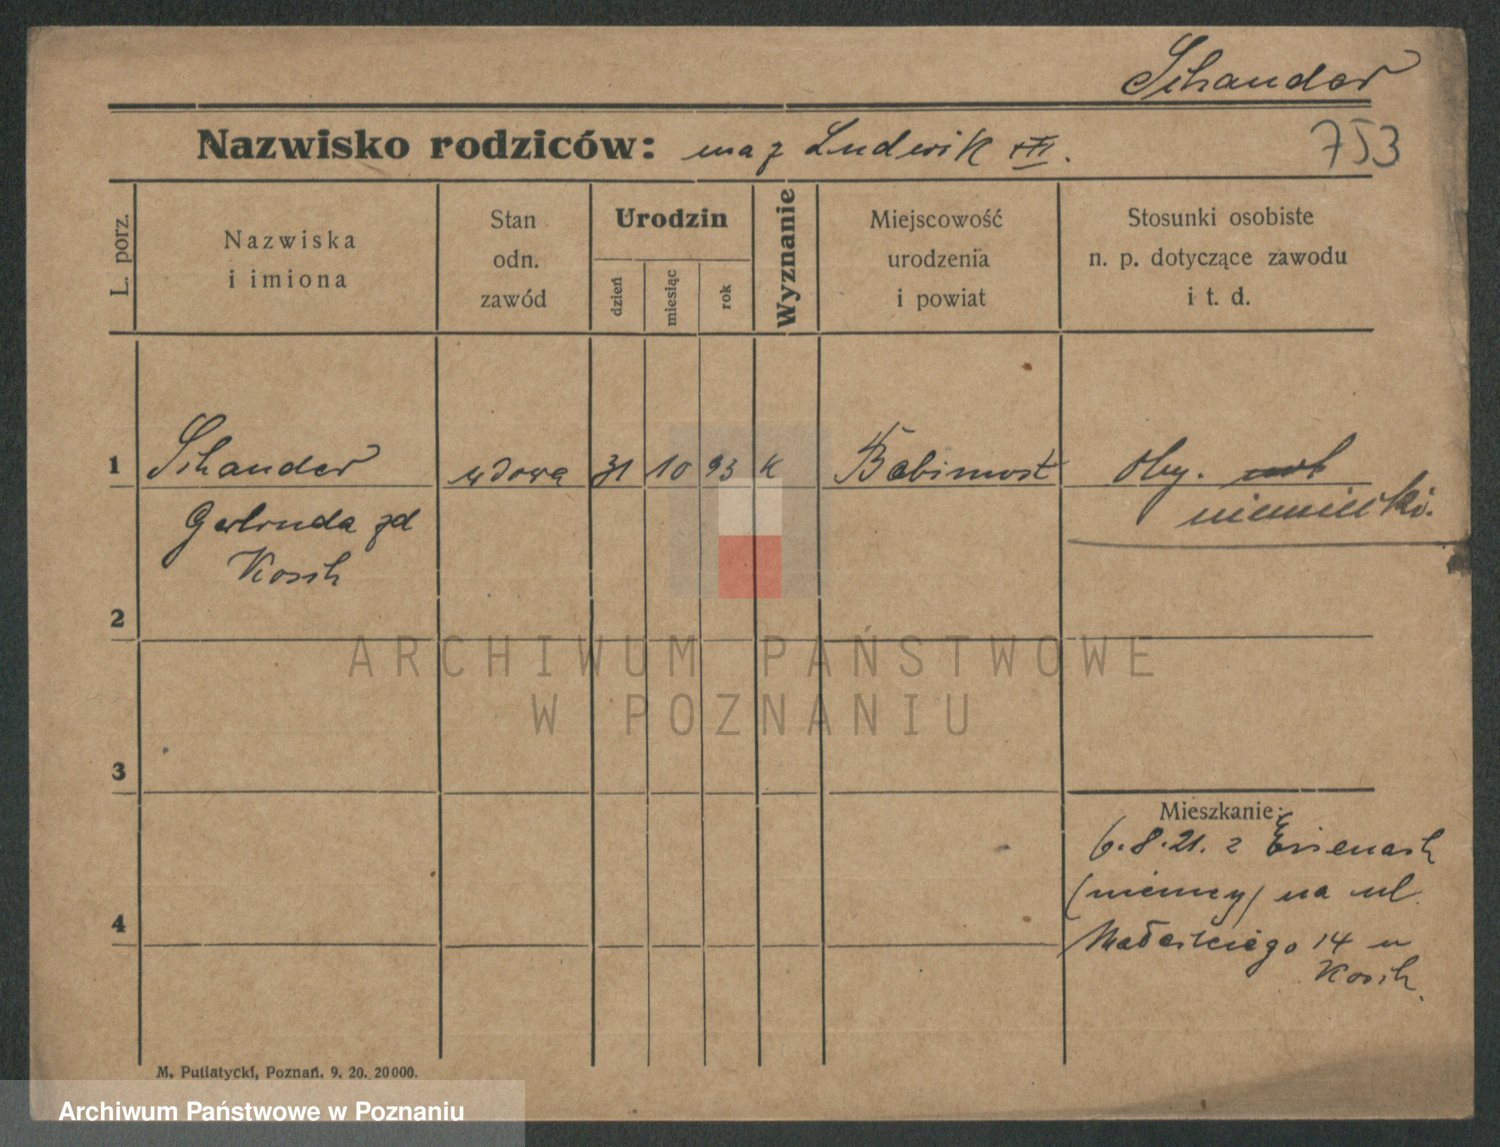 Schander
Nazwisko rodziców: mąż Ludwik
753
L. porz.
Nazwiska
i imiona
Stan
odn.
zawód
Urodzin
dzień
miesiąc
rok
Wyznanie
Miejscowość
urodzenia
i powiat
Stosunki osobiste
n. p. dotyczące zawodu
i t. d.
1 Schander wdowa 31 10 93 K Babimost oby.
niemiecki.
Gertruda zd
2
3
4
Mieszkanie:
6.8.21. z Eisenach
(niemcy) na ul.
Małeckiego 14 u
ARCHIWUM PAŃSTWOWE
W POZNANIU
M. Putiatycki, Poznań. 9. 20. 20000.
Archiwum Państwowe w Poznaniu